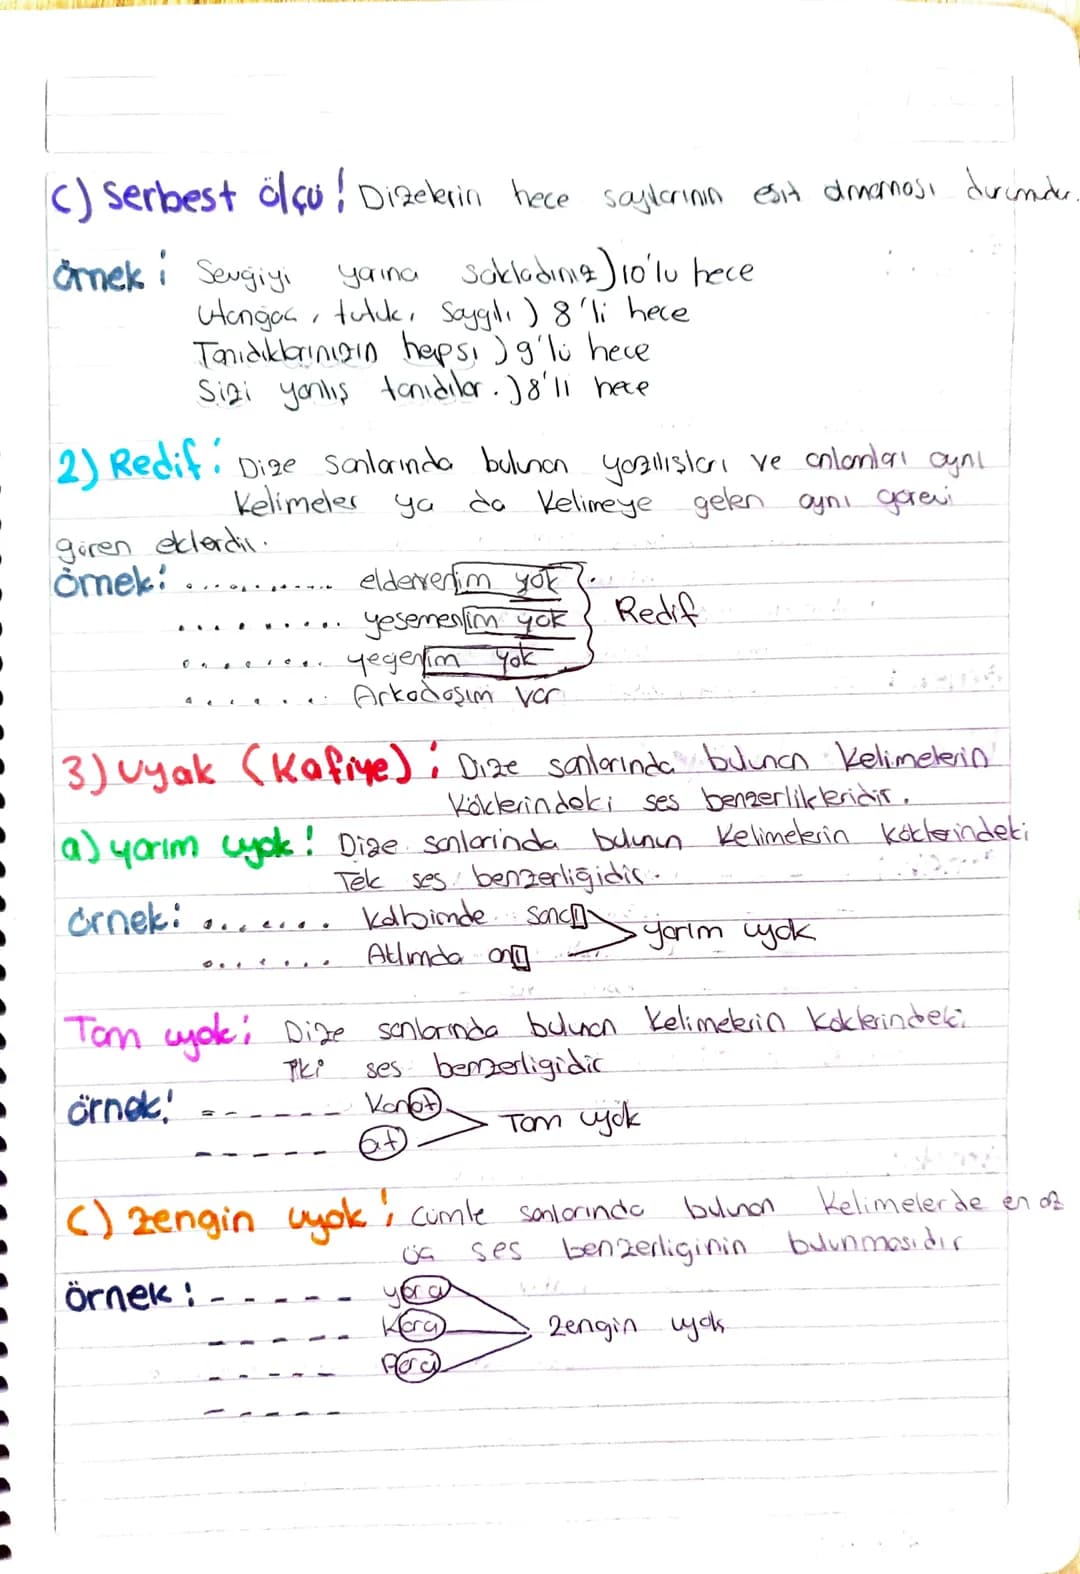 C) Serbest ölçü! Dizelerin hece sayılarının eşit olmaması durumudur.
Örnek: Sevgiyi yarına sakladınız) 10'lu hece
Utangaç, tutuk, saygılı) 8'li hece
Tanıdıklarınızın hepsi) 9'lu hece
Sizi yanlış tanıdılar.) 8'li hece
2) Redif: Dize sonlarında bulunan yazılışları ve anlamları aynı
Kelimeler ya da Kelimeye gelen aynı görevi
gören eklerdir.
Örnek: ............ eldivenim yok
......... yesemenim yok Redif
........ yegenim yok
....... Arkadaşım var
3) Uyak (Kafiye): Dize sonlarında bulunan Kelimelerin
Köklerindeki ses benzerlikleridir.
a) yarım uyak! Dize sonlarında bulunan Kelimelerin Köklerindeki
Tek ses benzerliğidir.
örnek: ....... Kalbimde sancı
....... Atlımda anı yarım uyak
Tam uyak: Dize sonlarında bulunan Kelimelerin Köklerindeki
İki ses benzerligidir
örnek! ------ Kanat
----- at Tam uyak
C) Zengin uyak: cümle sonlarında bulunan Kelimelerde en az
üç ses benzerliginin bulunmasıdır
örnek: ----- yara
----- Kara Zengin uyak
----- Para
-----